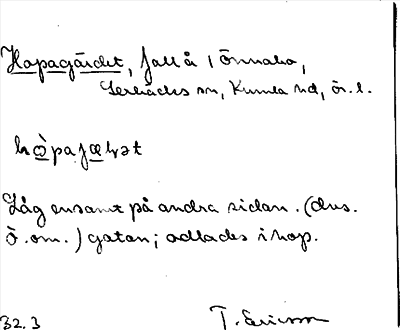 Hopagärdet, fall å 1 Önnabo,
Lerbäcks sn, Kumla hd, ör. l.
hò̠pajæ̠ḷət
Låg ensamt på andra sidan. (dvs.
ö. om.) gatan; odlades ihop.
32.3 T. Ericsson